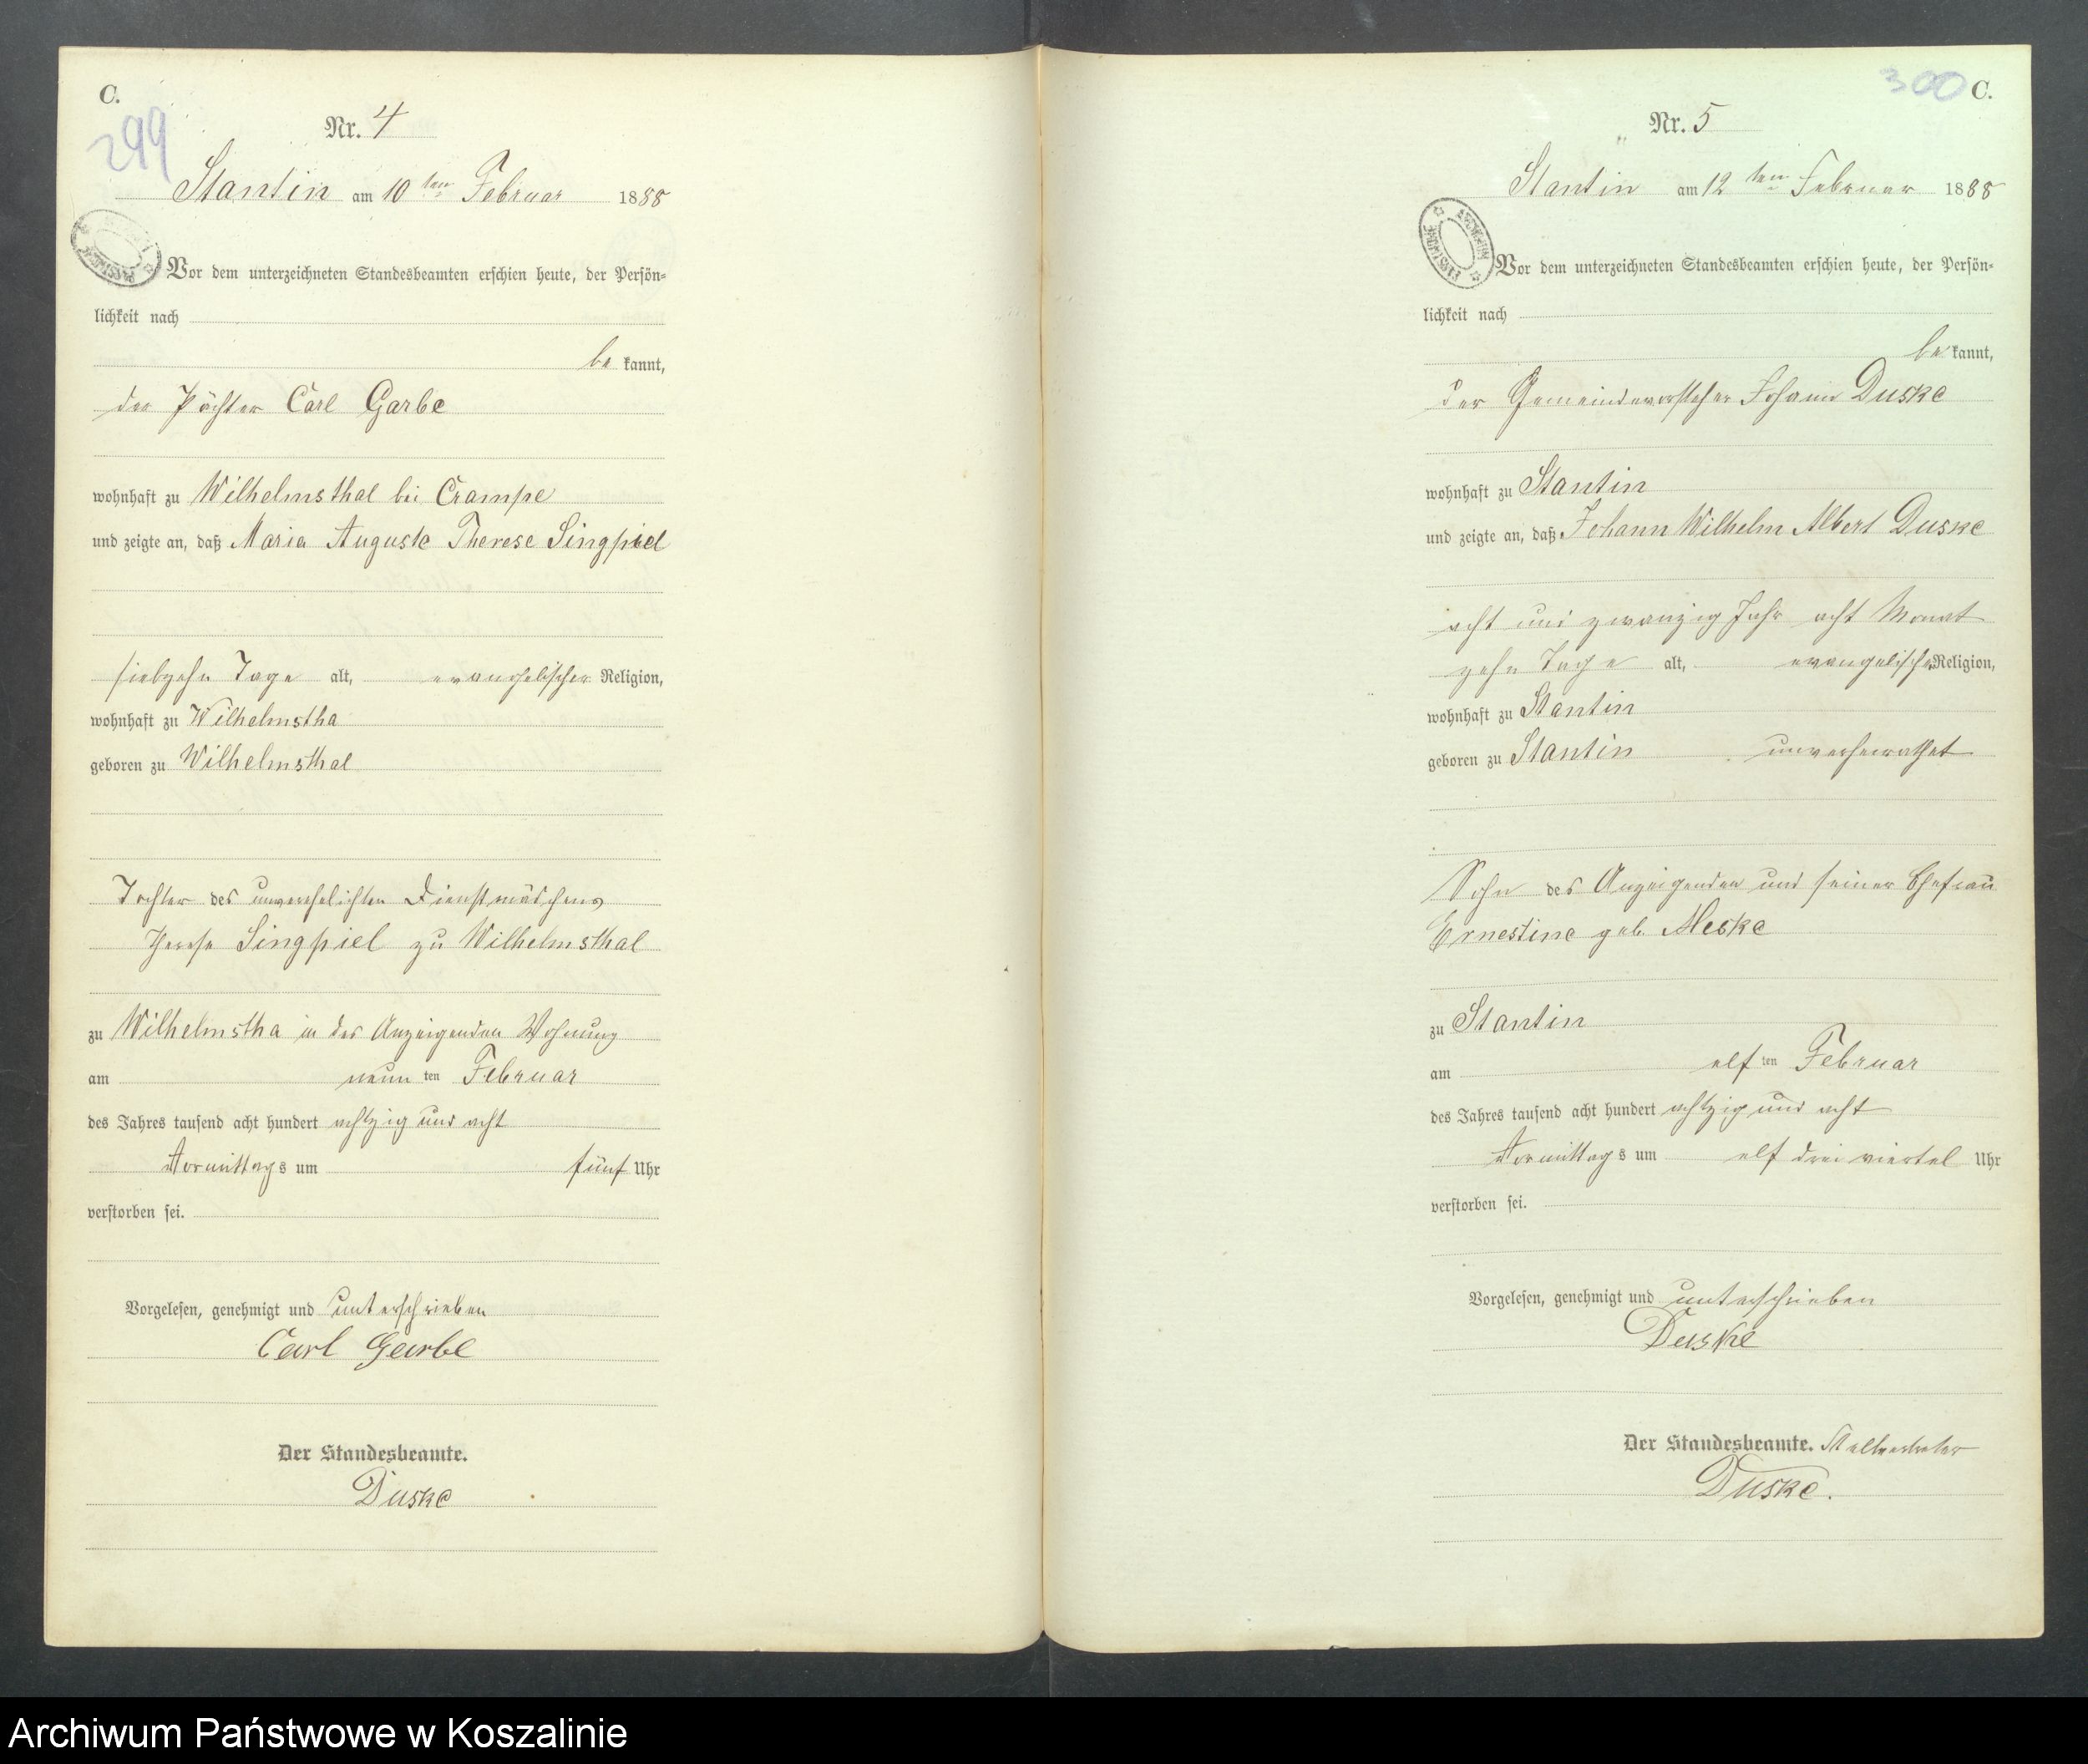 C.
299
Nr. 4
Stantin am 10 ten Februar 1888
Vor dem unterzeichneten Standesbeamten erschien heute, der Persön=
lichkeit nach
be kannt,
der Pächter Carl Garbe
wohnhaft zu Wilhelmsthal bei Crampe
und zeigte an, daß Maria Auguste Therese Singpiel
siebzehn Tage alt, evangelischer Religion,
wohnhaft zu Wilhelmstha
geboren zu Wilhelmsthal
Tochter des unverehelichten Dienstmädchens
Therese Singpiel zu Wilhelmsthal
zu Wilhelmstha in des Anzeigenden Wohnung
am neun ten Februar
des Jahres tausend acht hundert achtzig und acht
Vormittags um fünf Uhr
verstorben sei.
Vorgelesen, genehmigt und unterschrieben
Carl Garbe
Der Standesbeamte.
Duske
300 C.
Nr. 5
Stantin am 12 ten Februar 1888
Vor dem unterzeichneten Standesbeamten erschien heute, der Persön=
lichkeit nach
be kannt,
der Gemeindevorsteher Johann Duske
wohnhaft zu Stantin
und zeigte an, daß Johann Wilhelm Albert Duske
acht und zwanzig Jahr acht Monat
zehn Tage alt, evangelischer Religion,
wohnhaft zu Stantin
geboren zu Stantin unverheirathet
Sohn des Anzeigenden und seiner Ehefrau
Ernestine geb. Meske
zu Stantin
am elf ten Februar
des Jahres tausend acht hundert achtzig und acht
Vormittags um elf drei viertel Uhr
verstorben sei.
Vorgelesen, genehmigt und unterschrieben
Duske
Der Standesbeamte. Stellvertreter
Duske.
Archiwum Państwowe w Koszalinie